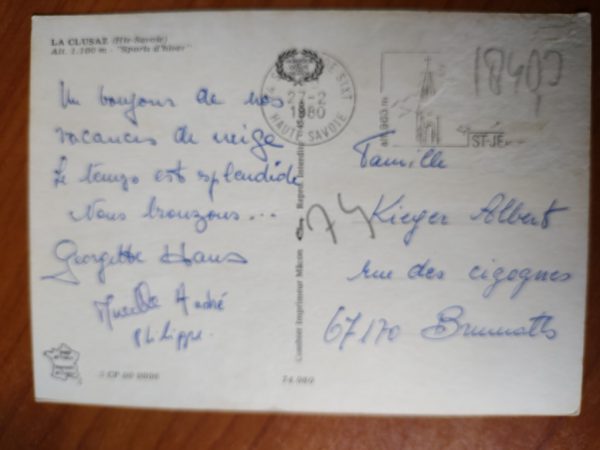 LA CLUSAZ (Hte-Savoie)
Alt. 1.100 m - "Sports d'hiver"
Un bonjour de nos
vacances de neige
Le temps est splendide
Nous bronzons...
Georgette Hans
Mireille André
Philippe.
DE SIXT
27-2
1980
HAUTE SAVOIE
alt. 963 m
ST-JE
18403
74
Famille
Kieger Albert
rue des cigognes
67170 Brumath
Combier Imprimeur Mâcon
Reprod. Interdite
74.080